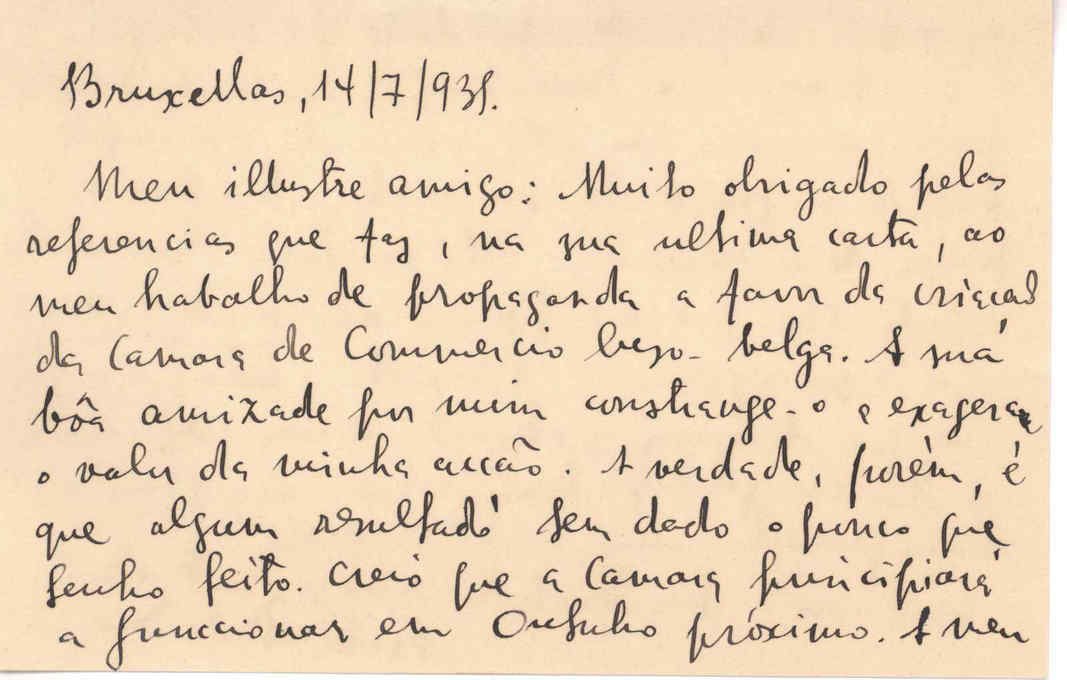 Bruxellas, 14/7/935.
Meu illustre amigo: Muito obrigado pelas
referencias que faz, na sua ultima carta, ao
meu trabalho de propaganda a favor da criação
da Camara de Commercio luso-belga. A sua
bôa amizade por mim constrange-o a exagerar
o valor da minha acção. A verdade, porém, é
que algum resultado tem dado o pouco que
tenho feito. Creio que a Camara principiará
a funccionar em Outubro próximo. A meu